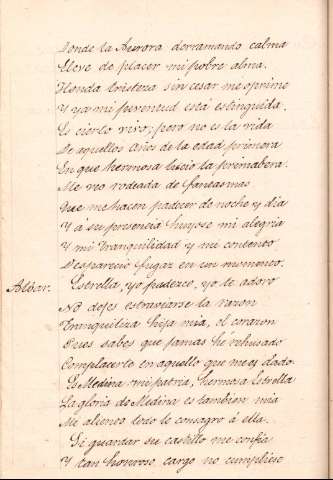 Donde la Aurora derramando calma
Lleve de placer mi pobre alma.
Honda tristeza sin cesar me oprime
Y ya mi juventud está estinguida.
Es cierto vivo; pero no es la vida
De aquellos años de la edad primera
En que hermosa lució la primabera.
Me veo rodeada de fantasmas
Que me hacen padecer de noche y dia
Y á su presencia huyose mi alegria
Y mi tranquilidad y mi contento
Desparecio fugaz en un momento.
Aldar. Estrella, yo padezco, yo te adoro
No dejes estraviarse la razon
Tranquiliza hija mia, el corazon
Pues sabes que jamas hé rehusado
Complacerte en aquello que me es dado.
Es Medina mi patria, hermosa Estrella
La gloria de Medina es tambien mia
Me aliento todo lo consagro á ella.
Si guardar su castillo me confia
Y tan honroso cargo no cumpliese